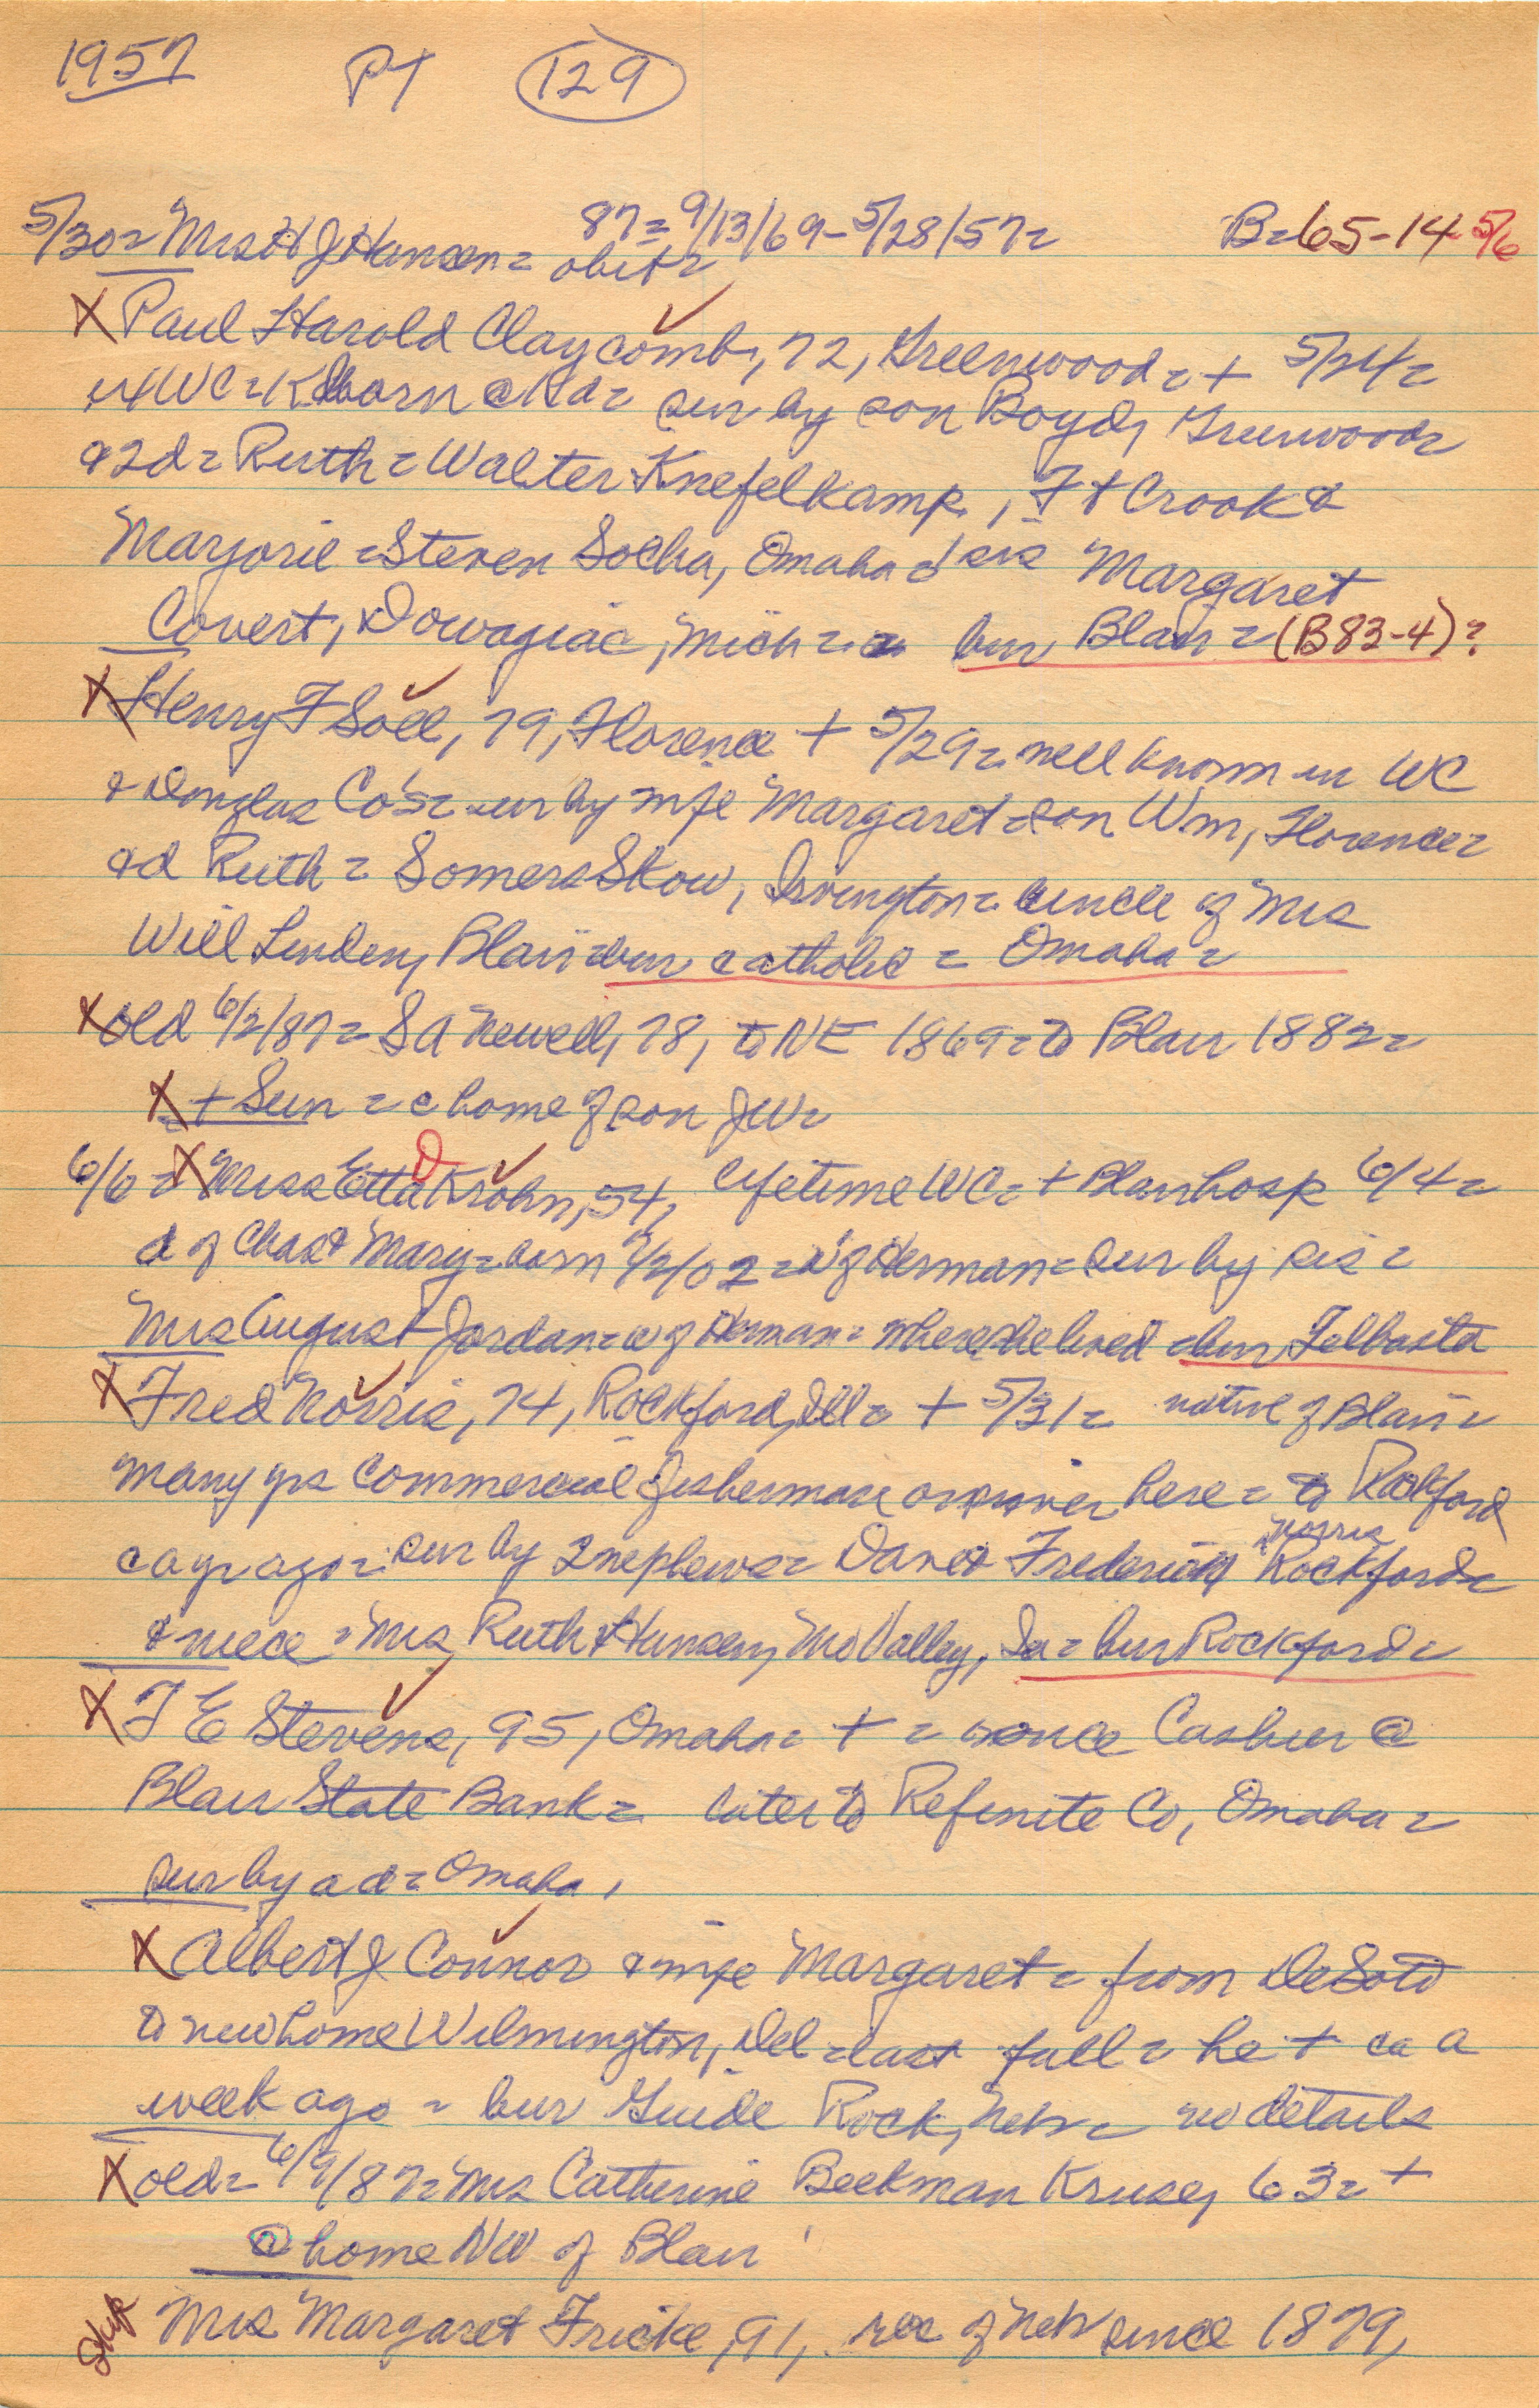 1957 PT 129
87 = 9/13/69 - 5/28/57 =
5/30 = Mrs H J Hansen = obit = B = 65-14 5/6
X Paul Harold Claycomb, 72, Greenwood = + 5/24 =
WC = sur by son Boyd, Greenwood =
& 2d = Ruth = Walter Knefelkamp, Ft Crook &
Marjorie = Steven Socha, Omaha = sis Margaret
Covert, Dowagiac, Mich = bur Blair = (B83-4)?
X Henry F Soll, 79, Florence + 5/29 = well known in WC
& Douglas Co's = sur by wife Margaret = son Wm, Florence =
& d Ruth = Somers Skow, Irvington = uncle of Mrs
Will Linden, Blair = bur catholic = Omaha =
X old 6/2/87 = S A Newell, 78, to NE 1869 = to Blair 1882 =
X + Sun = @ home of son JW =
6/6 = X Miss Etta D Krohn, 54, lifetime WC = + Blair hosp 6/4 =
d of Chas & Mary = born 7/2/02 = W of Herman = sur by sis =
Mrs August Jordan = W of Herman = where she lived = bur Telbasta
X Fred Norris, 74, Rockford, Ill = + 5/31 = native of Blair =
many yrs commercial fisherman on river here = to Rockford
ca yr ago = sur by 2 nephews = Dave & Frederick Norris Rockford =
& niece = Mrs Ruth Hansen, Mo Valley, Ia = bur Rockford =
X T E Stevens, 95, Omaha = + = once Cashier @
Blair State Bank = later to Refinite Co, Omaha =
sur by a d = Omaha,
X Albert J Connor & wife Margaret = from DeSoto
to new home Wilmington, Del = last fall = he + ca a
week ago = bur Guide Rock, Neb = no details
X old = 6/9/87 = Mrs Catherine Beekman Kruse, 63 = +
@ home NW of Blair
Skip Mrs Margaret Fricke, 91, res of Neb since 1879,